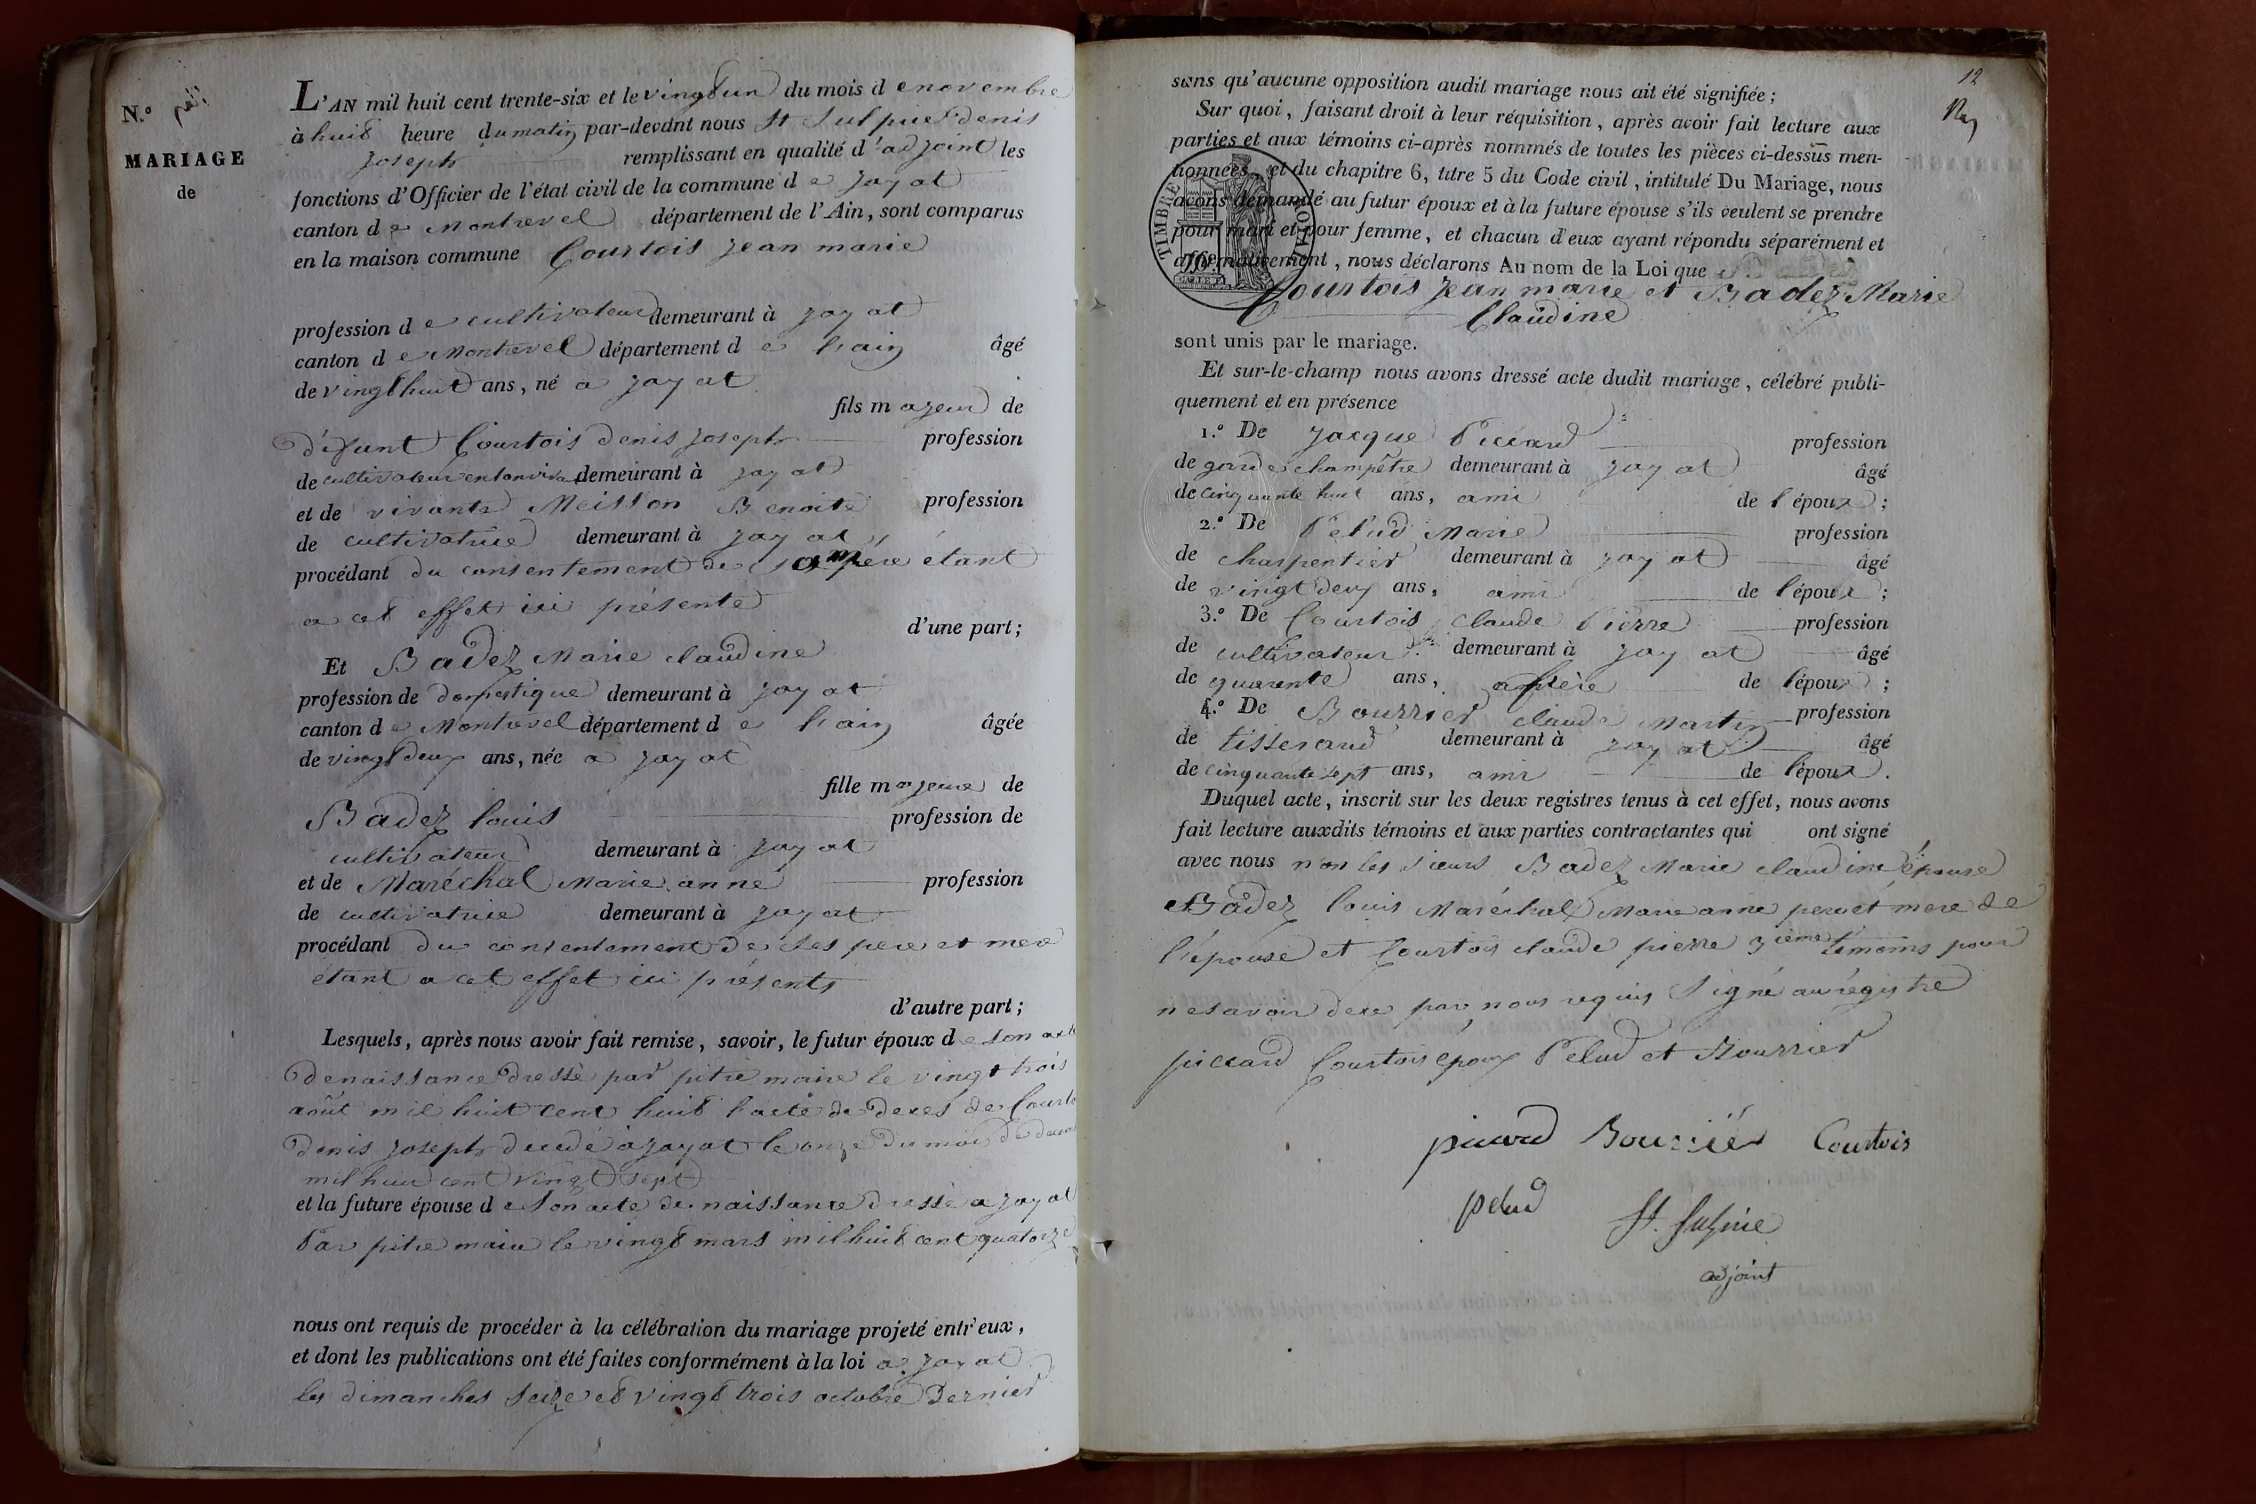 N.º
MARIAGE
de
L'AN mil huit cent trente-six et le vingt un du mois d e novembre
à huit heure du matin par-devant nous St Sulpice denis
joseph remplissant en qualité d'adjoint les
fonctions d'Officier de l'état civil de la commune d e jayat
canton d e Montrevel département de l'Ain, sont comparus
en la maison commune Courtois jean marie
profession d e cultivateur demeurant à jayat
canton d e Montrevel département d e l'ain âgé
de vingt huit ans, né a jayat
fils majeur de
défunt Courtois denis joseph profession
de cultivateur en son vivant demeurant à jayat
et de vivante Meisson Benoite profession
de cultivatrice demeurant à jayat
procédant du consentement de sa mère étant
a cet effet ici présente
d'une part;
Et Badez Marie claudine
profession de domestique demeurant à jayat
canton d e Montrevel département d e l'ain âgée
de vingt deux ans, née a jayat
fille majeure de
Badez louis profession de
cultivateur demeurant à jayat
et de Maréchal Marie anne profession
de cultivatrice demeurant à jayat
procédant du consentement de ses pere et mere
étant a cet effet ici présents
d'autre part;
Lesquels, après nous avoir fait remise, savoir, le futur époux d e son acte
de naissance dressé par pitre maire le vingt trois
août mil huit cent huit l'acte de deces de Courto
denis joseph decedé a jayat le onze du mois de
mil huit cent vingt sept
et la future épouse d e son acte de naissance dressé a jayat
par pitre maire le vingt mars mil huit cent quatorze
nous ont requis de procéder à la célébration du mariage projeté entr'eux,
et dont les publications ont été faites conformément à la loi a jayat
les dimanches seize et vingt trois octobre dernier
12
sans qu'aucune opposition audit mariage nous ait été signifiée;
Sur quoi, faisant droit à leur réquisition, après avoir fait lecture aux
parties et aux témoins ci-après nommés de toutes les pièces ci-dessus men-
tionnées, et du chapitre 6, titre 5 du Code civil, intitulé Du Mariage, nous
avons demandé au futur époux et à la future épouse s'ils veulent se prendre
pour mari et pour femme, et chacun d'eux ayant répondu séparément et
affirmativement, nous déclarons Au nom de la Loi que
TIMBRE ROYAL
Courtois jean marie et Badez Marie
Claudine
sont unis par le mariage.
Et sur-le-champ nous avons dressé acte dudit mariage, célébré publi-
quement et en présence
1.º De jacque Piccard profession
de garde champêtre demeurant à jayat âgé
de cinquante huit ans, ami de l'époux;
2.º De Pelud Marie profession
de charpentier demeurant à jayat âgé
de vingt deux ans, ami de l'époux;
3.º De Courtois claude Pierre profession
de cultivateur demeurant à jayat âgé
de quarente ans, frère de l'époux;
4.º De Bourrier claude Martin profession
de tisserand demeurant à jayat âgé
de cinquante sept ans, ami de l'époux.
Duquel acte, inscrit sur les deux registres tenus à cet effet, nous avons
fait lecture auxdits témoins et aux parties contractantes qui ont signé
avec nous non les sieurs Badez Marie claudine l'épouse
Badez louis Maréchal Marie anne pere et mere de
l'épouse et Courtois claude pierre 3ième témoins pour
ne savoir de ce par nous requis Signé au régistre
piccard Courtois époux Pelud et Bourrier
picard Bourrier Courtois
pelud St. Sulpice
adjoint